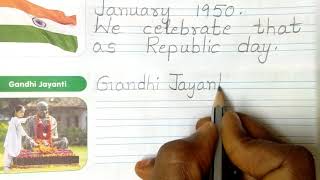 January 1950.
We celebrate that
as Republic day.
Gandhi Jayanti
Gandhi Jayant